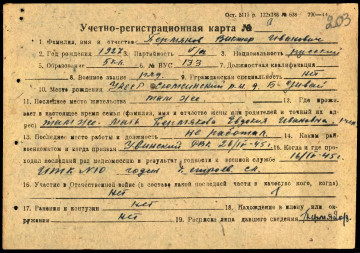 203
Учетно-регистрационная карта №
1. Фамилия, имя и отчество Пермяков Виктор Иванович
2. Год рождения 1927г. 3. Партийность б/п 4. Национальность русский
5. Образование 5кл. 6. № ВУС 133 7. Должностная квалификация
8. Военное звание ряд. 9. Гражданская специальность нет
10. Место рождения
11. Последнее место жительства там же 12. Где прожи-
вает в настоящее время семья (фамилия, имя и отчество жены или родителей и точный их ад-
рес) там же мать Пермякова Ивановна
13. Последнее место работы и должность не работал 14. Каким рай-
военкоматом и когда призван Увинский РВК 45г. 15. Когда и где про-
ходил последний раз медкомиссию и результат годности к военной службе 45г.
годен к строев. сл.
16. Участие в Отечественной войне (в составе какой последней части и качестве кого, когда)
Нет
17. Ранения и контузии нет 18. Нахождение в плену или ок-
ружении нет 19. Росписка лица давшего сведения